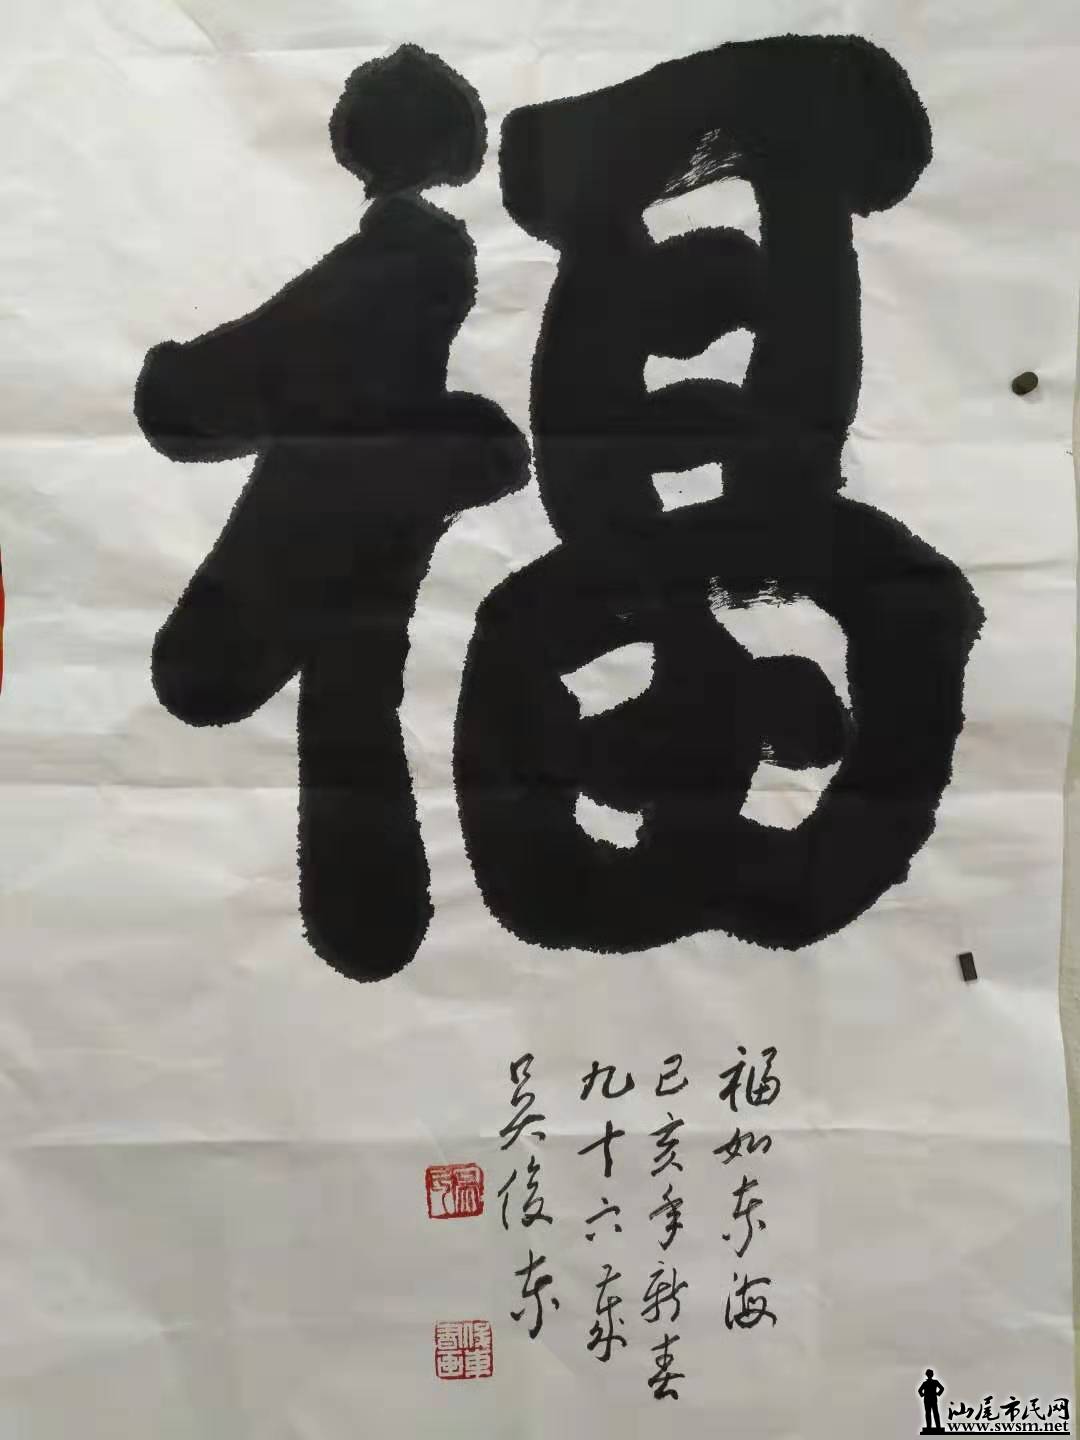 福
福如东海
己亥年新春
九十六岁
吴俊东
俊東書画
汕尾市民网
www.swsm.net